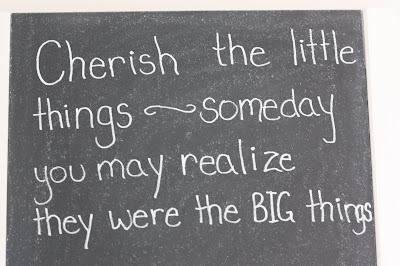 Cherish the little
things ~ someday
you may realize
they were the BIG things